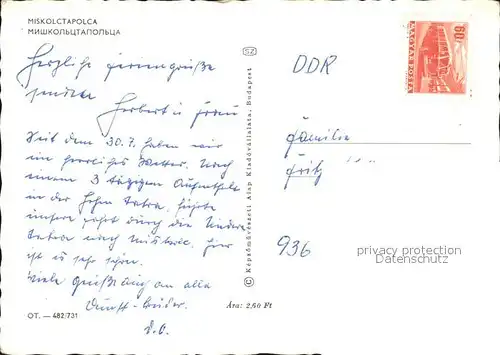 MISKOLCTAPOLCA
МИШКОЛЬЦТАПОЛЬЦА
Herzliche Feriengrüße
senden
Herbert u. Frau
Seit dem 30.7. haben wir
ein herrliches Wetter. Nach
einem 3 tägigen Aufenthalt
in der Hohen Tatra, führte
unsere Fahrt durch die Niedere
Tatra nach Miskolc. Hier
ist es sehr schön.
Viele Grüße auch an alle
D.O.
OT. — 482/731
Képzőművészeti Alap Kiadóvállalata, Budapest
Ára: 2,60 Ft
MAGYAR POSTA
60
DDR
Familie
Fritz
936
privacy protection
Datenschutz